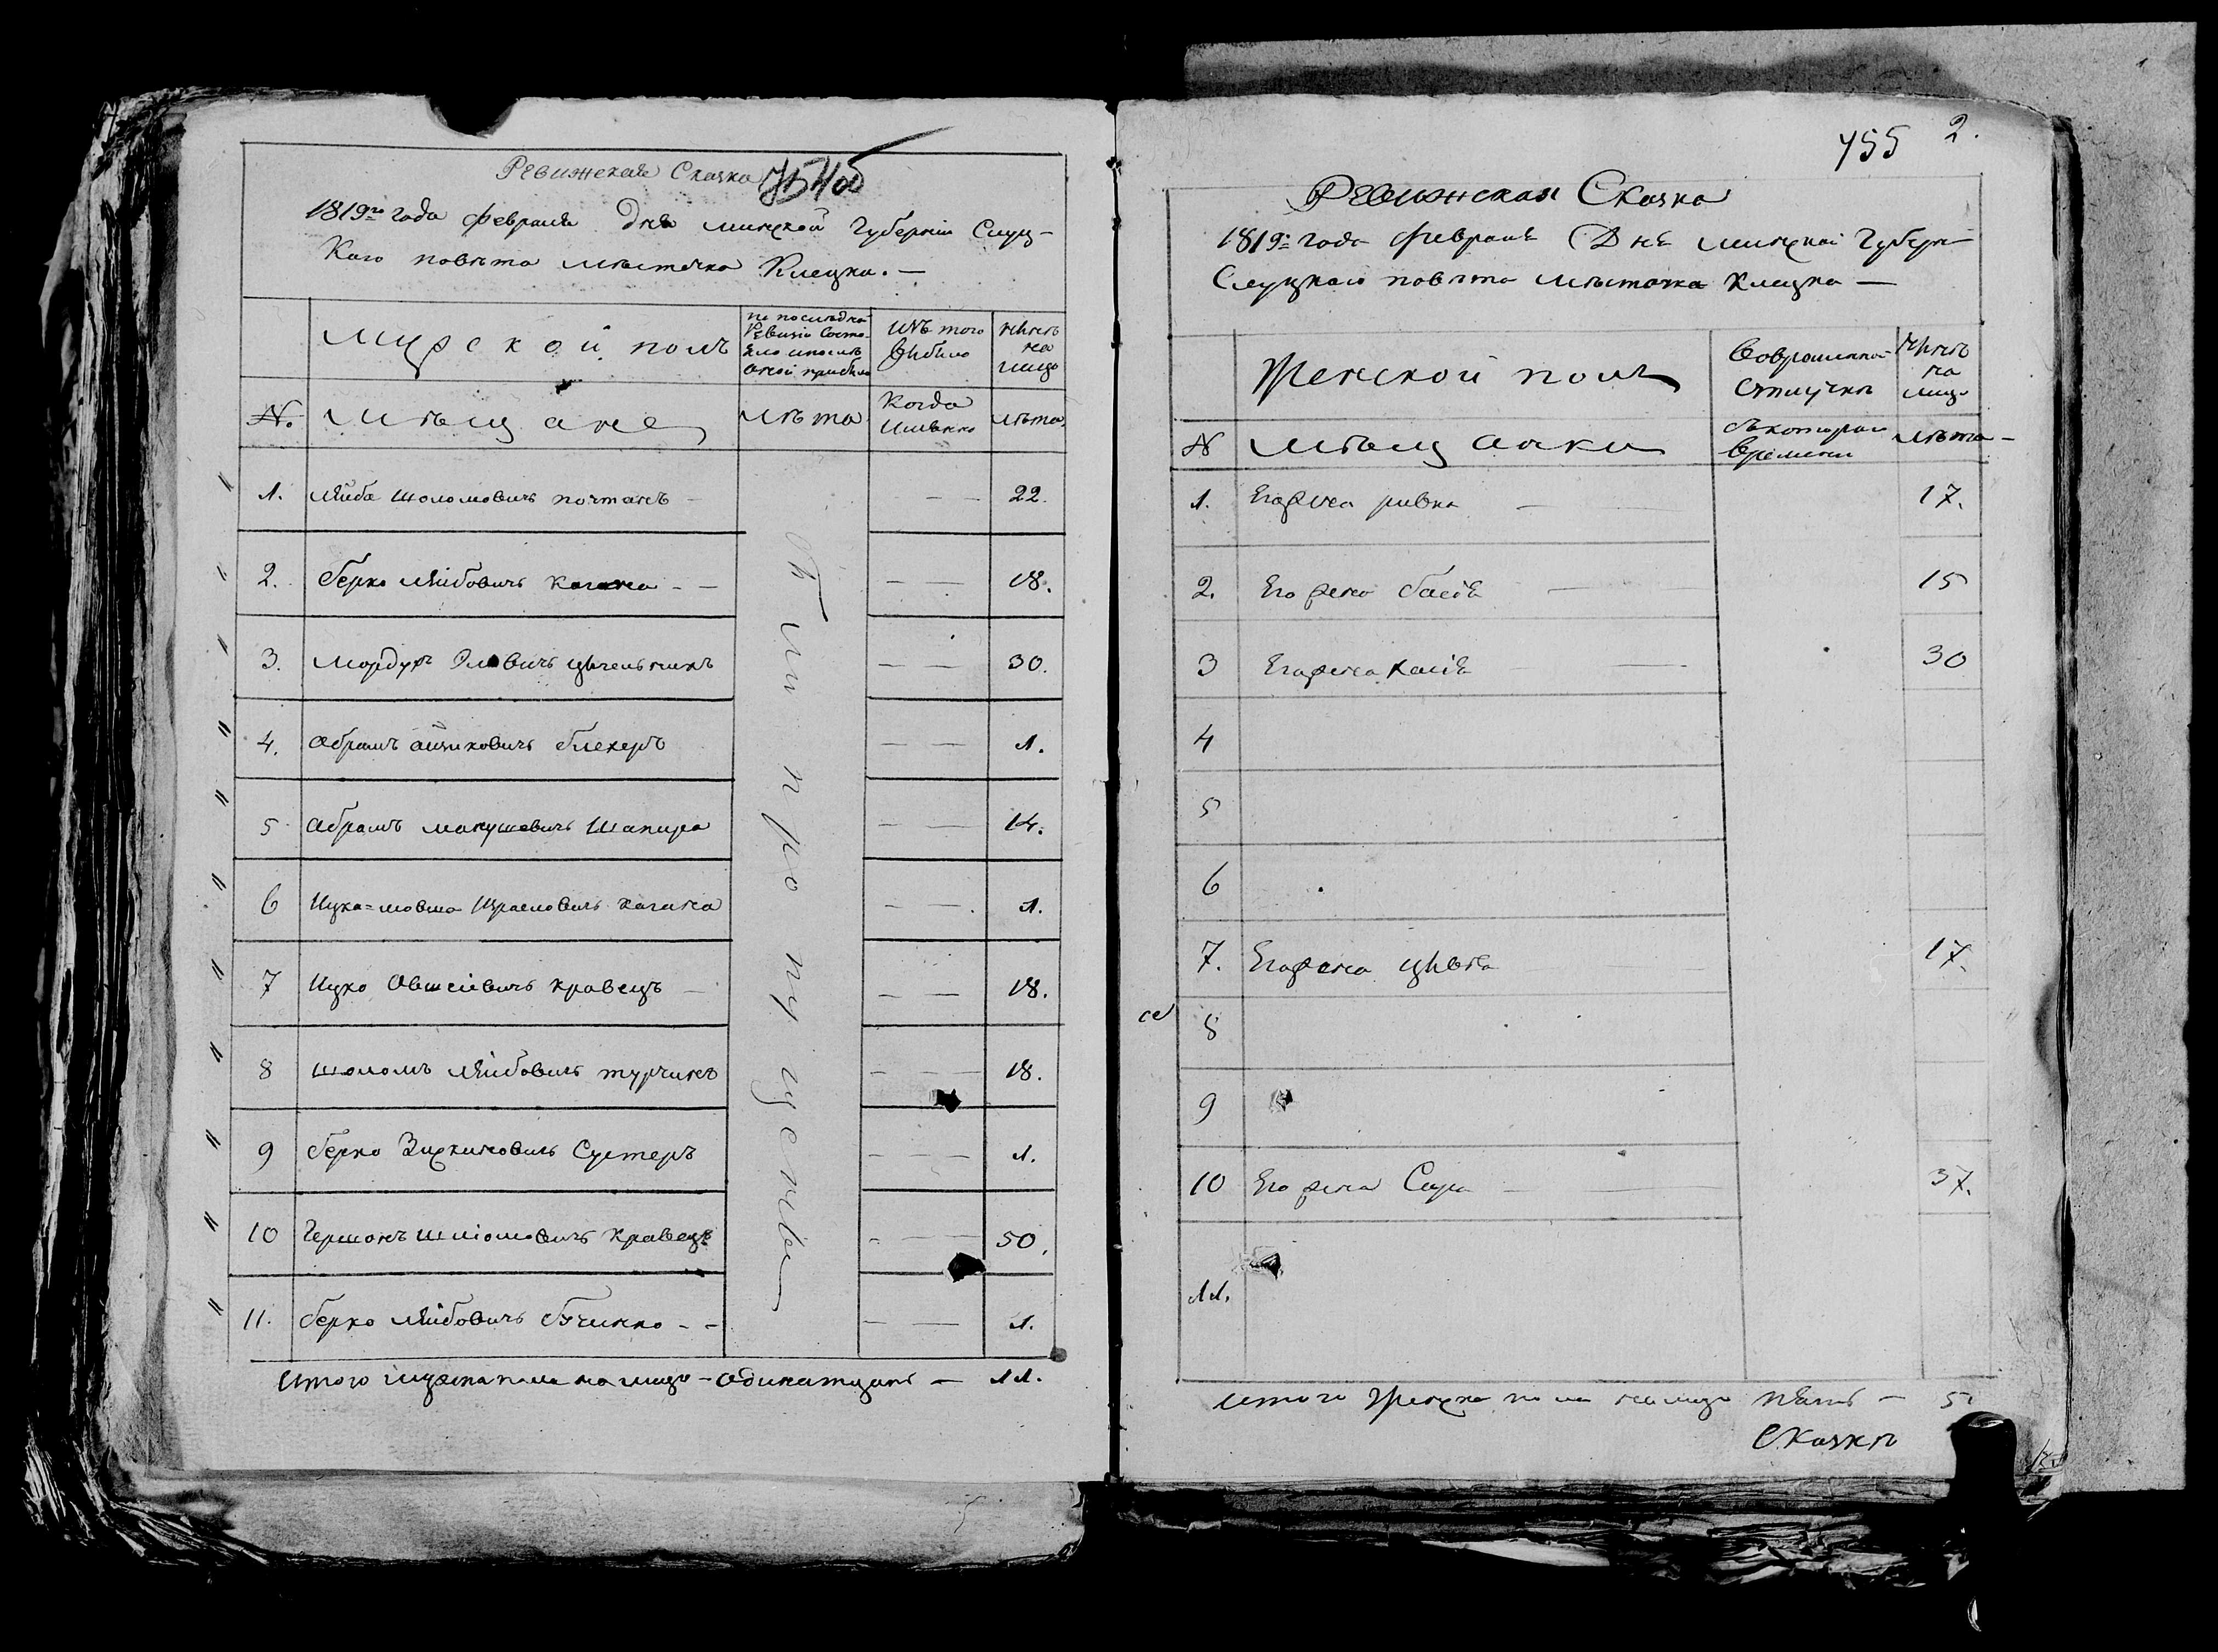 Ревижская Сказка
1819го года февраля Дня минской Губерніи Слуц-
каго повѣта мѣстечка Клецка. —
Мужской полъ
по последней
Ревизіи состо-
яло и после
оной прибыло
изъ того
выбыло
ныне
на
лицо
№. Мѣщане лѣта Когда
именно лѣта
1. Лейба Шоломовичъ почтаръ — — — 22.
2. Берко Лейбовичъ Кагана - - — — 18.
3. Мордухъ Эловичъ цыгельникъ — — 30.
4. Абрамъ Айзиковичъ блехеръ — — 1.
5 Абрамъ Манушовичъ Шапира — — 14.
6 Ицка=мовша Израеловичъ Кагана — — 1.
7 Ицко Овшеіовичъ Кравецъ — — — 18.
8 Шоломъ Лейбовичъ турчинъ — — 18.
9 Берко Зискиновичъ Сустеръ - — — 1.
10 Гершонъ Шліомовичъ Кравецъ - — — 50.
11. Берко Лейбовичъ - - — — 1.
были пропущены
Итого мужска пола на лицо - одинатцать — 11.
455 2.
Ревижская Сказка
1819: года февраля Дня минской Губерн
Слуцкаго повѣта мѣстечка Клецка —
Женской полъ
Вовременной
отлучкѣ
ныне
на
лицо
№ Мѣщанки
съкотораго
времени
лѣта
1. Егожена ривка — 17.
2. Его жена бася — 15
3 Егожена Хася — 30
4
5
6
7. Егожена цывя 17.
8
9
10 Его жена Сора — 37.
11.
итого женска пола налицо пять — 5
Сказкѣ